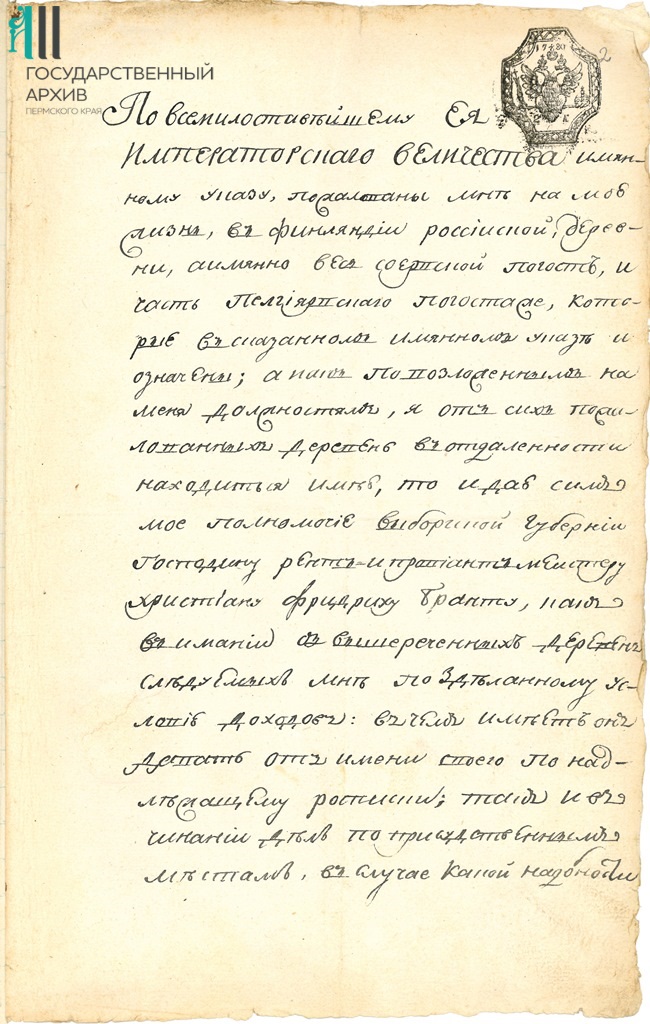 ГОСУДАРСТВЕННЫЙ
АРХИВ
ПЕРМСКОГО КРАЯ
1780
2
По всемилостивѣйшему Ея
Императорскаго величества имян-
ному указу, пожалованы мнѣ на мою
жизнь, въ финляндіи россійской, дерев-
ни, аимянно весь погостъ, и
часть погоста же, кото-
рые въ сказанномъ имянномъ указѣ и
означены; а какъ по возложеннымъ на
меня должностямъ, я отъ сихъ пожа-
лованныхъ деревень въ отдаленности
находиться имѣю, то и давъ симъ
мое полномочіе выборгской губерніи
Господину рентъ-и провіантъ мейстеру
христіану фридриху Бранту, какъ
въ иманіи съ вышереченныхъ деревень
слѣдуемыхъ мнѣ по здѣланному ус-
ловію доходовъ: въ чемъ имѣетъ онъ
давать отъ имени своего по над-
лѣжащему росписки; такъ и въ
чинаніи дѣлъ по присудственнымъ
мѣстамъ, въ случае какой надобности